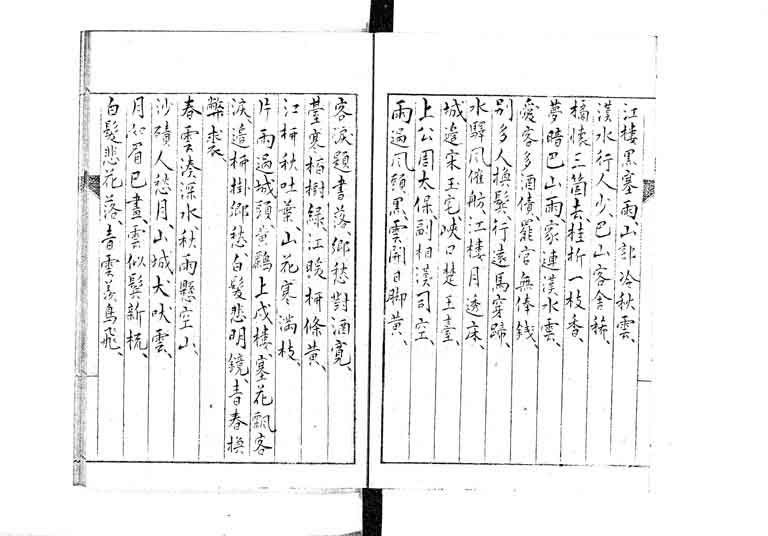 江樓黒塞雨、山郭冷秋雲、
漢水行人少、巴山客舍稀、
橘懷三箇去、桂折一枝香、
夢暗巴山雨、家連漢水雲、
愛客多酒債、罷官無俸錢、
別多人換鬢、行遠馬穿蹄、
水驛風催舫、江樓月透床、
城邊宋玉宅、峽口楚王臺、
上公周太保、副相漢司空、
雨過風頭黒、雲開日脚黄、
客淚題書落、鄉愁對酒寬、
臺寒柏樹緑、江暖柳條黄、
江柳秋吐葉、山花寒滿枝、
片雨過城頭、黄鸝上戍樓、塞花飄客
淚、邉柳掛鄉愁、白髮悲明鏡、青春換
弊裘、
春雲湊深水、秋雨懸空山、
沙磧人愁月、山城犬吠雲、
月如眉已畫、雲似鬢新梳、
白髮悲花落、青雲羨鳥飛、